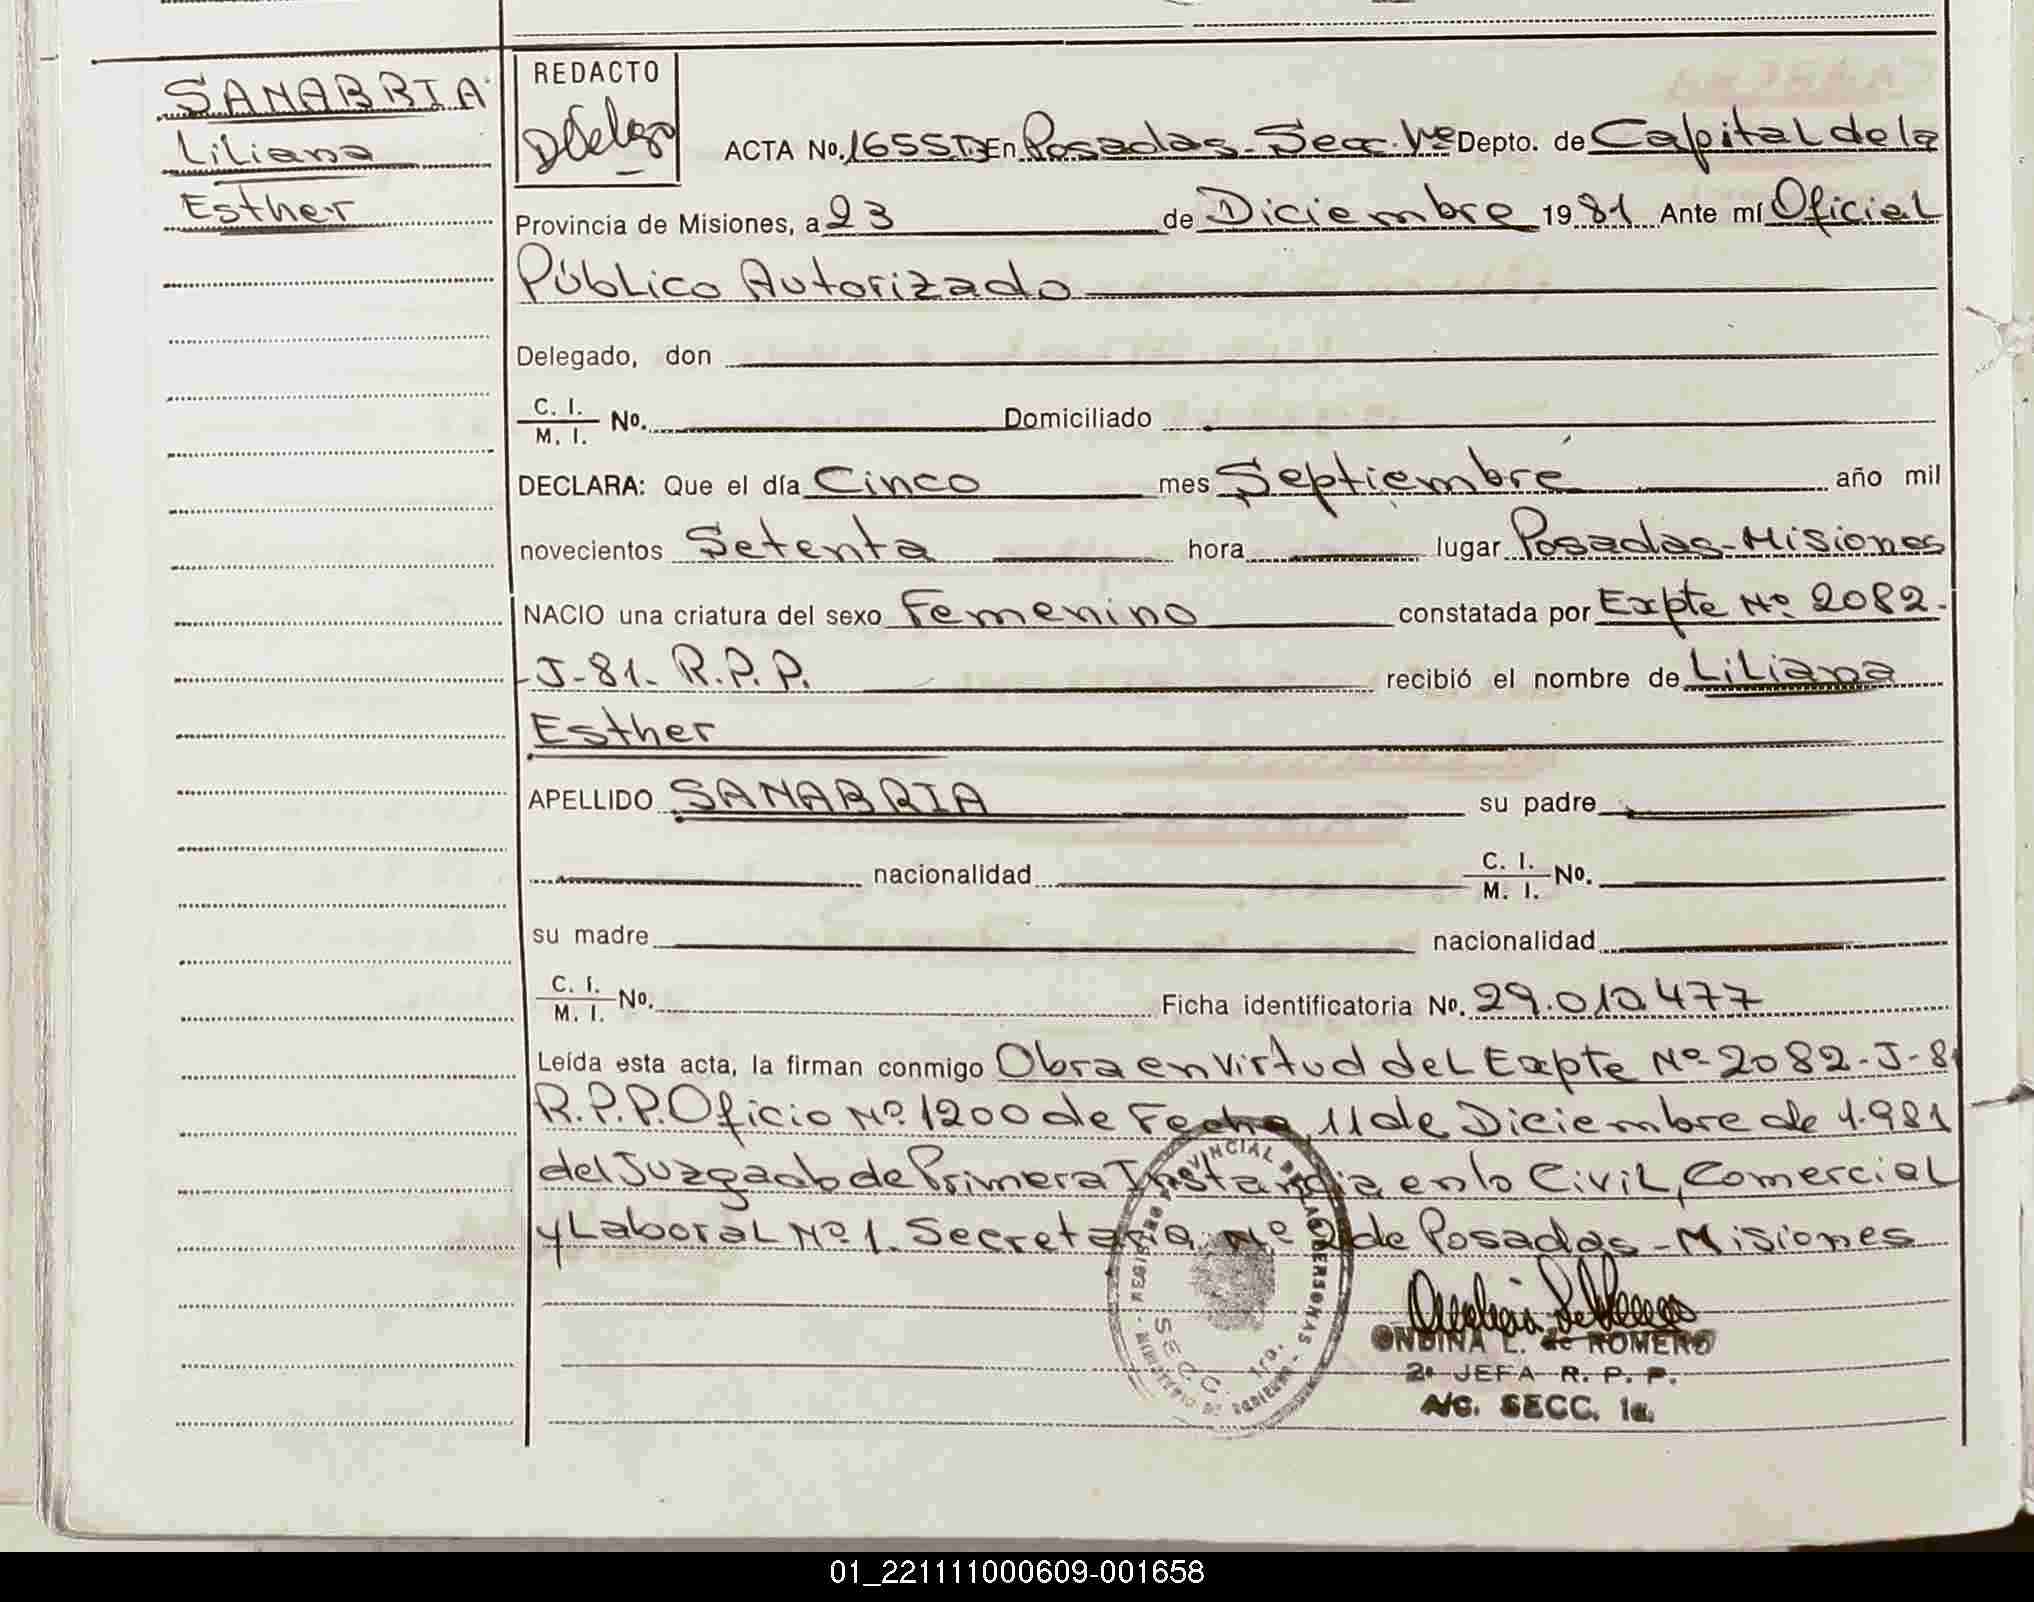 SANABRIA
Liliana
Esther
REDACTO
ACTA No. 1655 En Posadas - Secc. 1ra Depto. de Capital de la
Provincia de Misiones, a 23 de Diciembre 1981 Ante mí Oficial
Público Autorizado
Delegado, don
C. I. / M. I. No. Domiciliado
DECLARA: Que el día Cinco mes Septiembre año mil
novecientos Setenta hora lugar Posadas-Misiones
NACIO una criatura del sexo Femenino constatada por Expte Nº 2082-
-J-81- R.P.P. recibió el nombre de Liliana
Esther
APELLIDO SANABRIA su padre
nacionalidad C. I. / M. I. No.
su madre nacionalidad
C. I. / M. I. No. Ficha identificatoria No. 29.010.477
Leída esta acta, la firman conmigo Obra en virtud del Expte Nº 2082-J-81
R.P.P. Oficio Nº 1200 de Fecha 11 de Diciembre de 1.981
del Juzgado de Primera Instancia en lo Civil, Comercial
y Laboral Nº 1. Secretaria Nº 2 de Posadas - Misiones
REGISTRO PROVINCIAL DE LAS PERSONAS - MINISTERIO DE GOBIERNO -
SECC. 1ra.
ONDINA L. de ROMERO
2a JEFA R. P. P.
A/C. SECC. 1a.
01_221111000609-001658